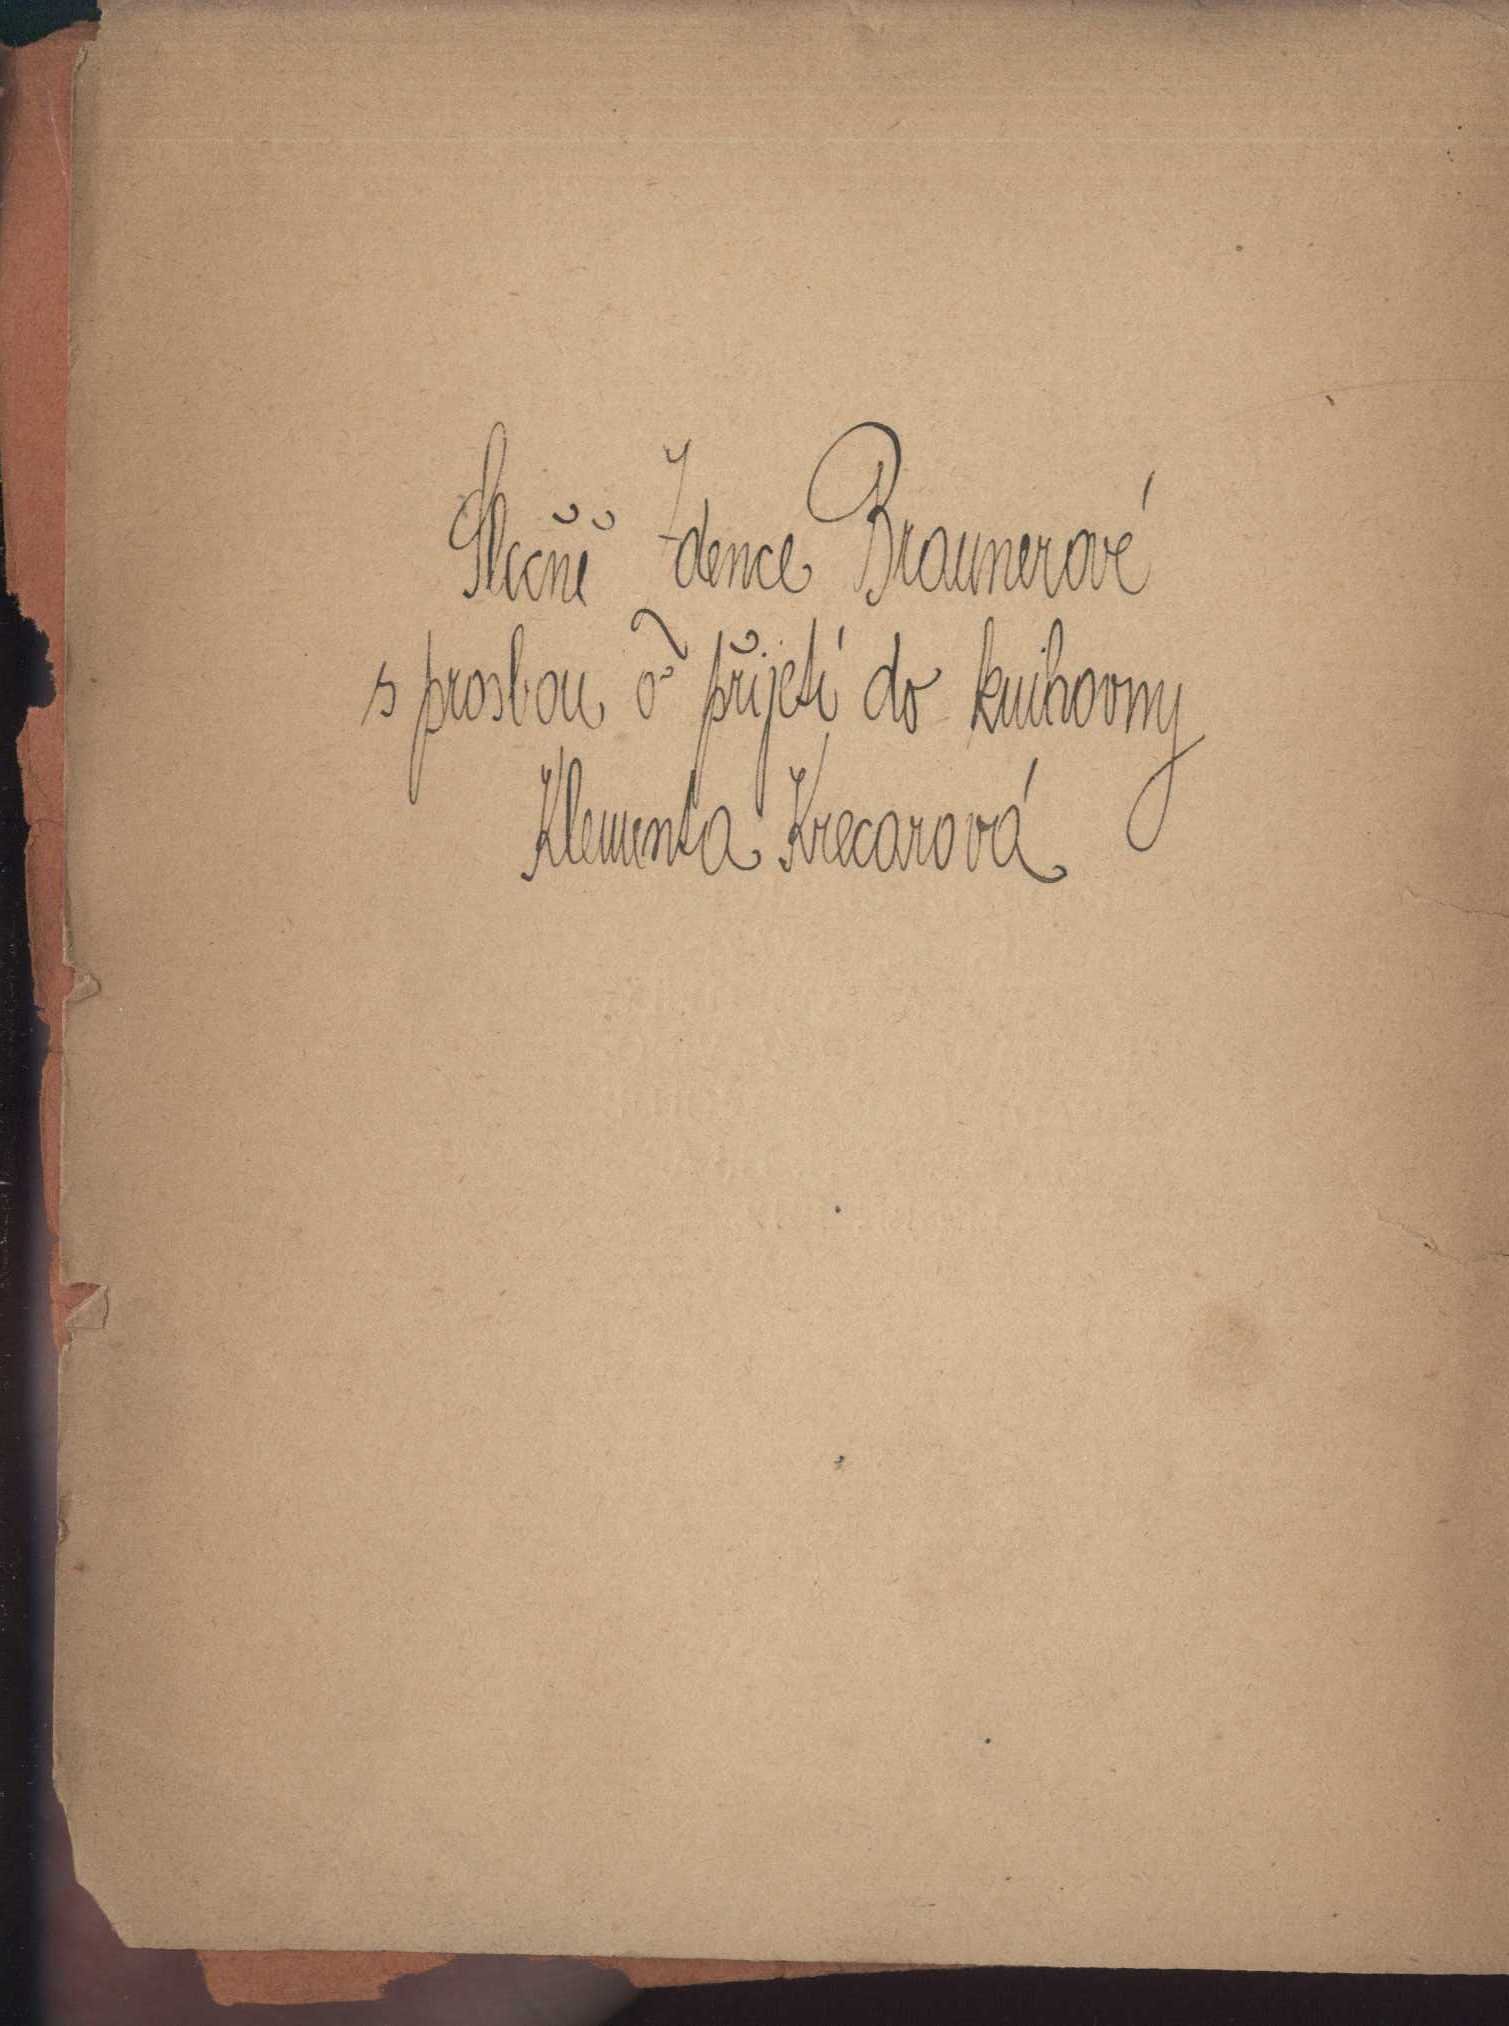 Slečně Zdence Braunerové
s prosbou o přijetí do knihovny
Klementa Krecarová